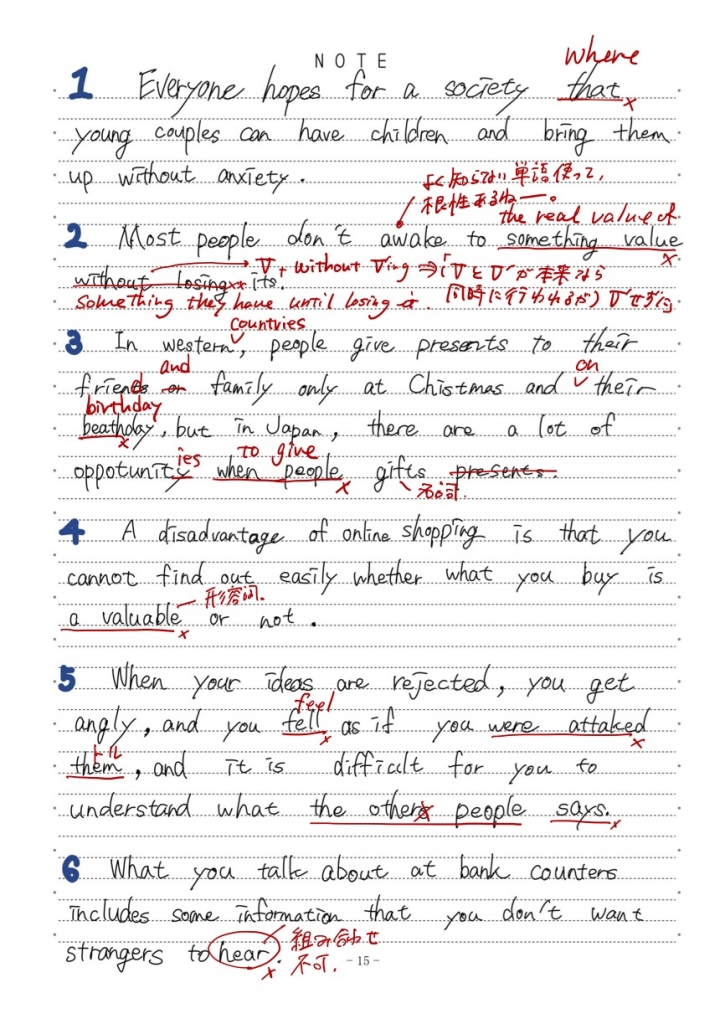 NOTE
where
1 Everyone hopes for a society that ×
young couples can have children and bring them
up without anxiety.
よく知らない単語使って、
根性あるねー。
the real value of
2 Most people don't awake to something value ×
without losing ×× its.
V + without Ving ⇒「VとV'が本来なら
something they have until losing it.
同時に行われるが」V'せずに
countries
3 In western, people give presents to their
and
on
friends or family only at Chistmas and their
birthday
beathday, but in Japan, there are a lot of
ies
to give
oppotunity when people gifts presents.
名詞.
4 A disadvantage of online shopping is that you
cannot find out easily whether what you buy is
形容詞.
a valuable or not.
5 When your ideas are rejected, you get
feel
angly, and you fell as if you were attaked
トル
them, and it is difficult for you to
understand what the others people says.
6 What you talk about at bank counters
includes some information that you don't want
strangers to hear.
組み合わせ
不可.
- 15 -